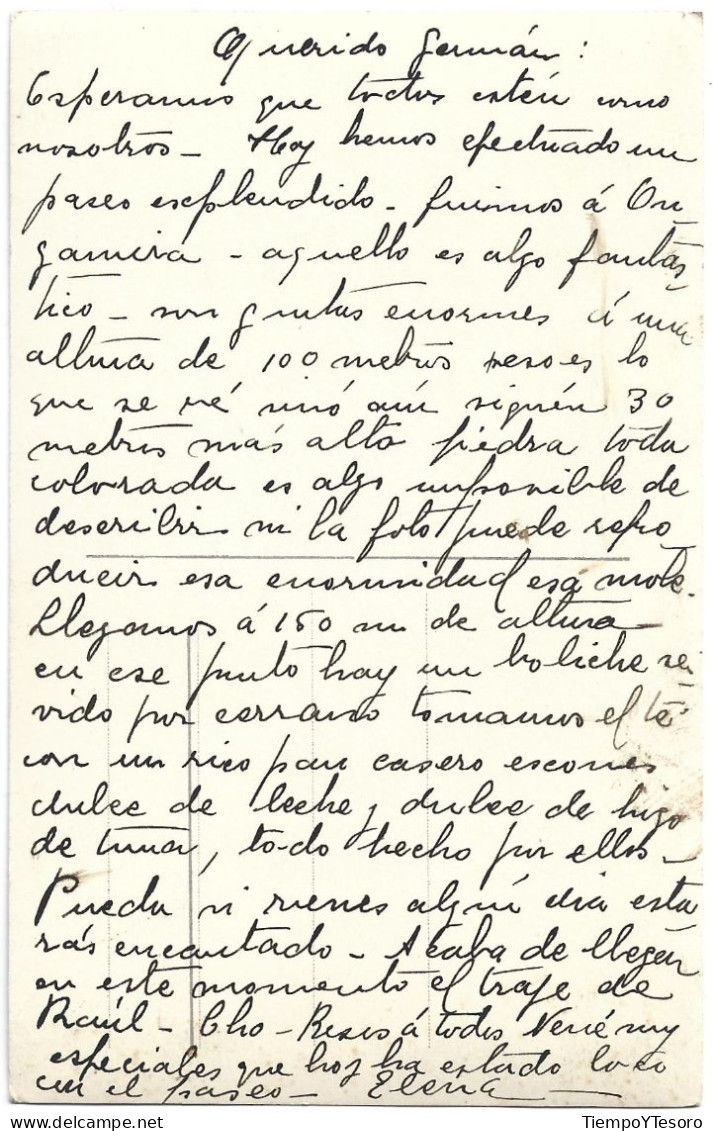 Querido Germán:
Esperamos que todos estén como
nosotros – Hoy hemos efectuado un
paseo esplendido – fuimos á On-
gamira – aquello es algo fantás-
tico – son grutas enormes á una
altura de 100 metros peso es lo
que se vé sinó aún siguén 30
metros más alto piedra toda
colorada es algo imposible de
describir ni la foto puede repro-
ducir esa enormidad esa mole.
Llegamos á 150 m de altura –
en ese punto hay un boliche ser-
vido por serrano tomamos el té
con un rico pan casero escones
dulce de leche y dulce de higo
de tuna, todo hecho por ellos –
Pueda si vienes algún dia esta
rás encantado – Acaba de llegar
en este momento el traje de
Raúl – Cho – Besos á todos Nené muy
especiales que hoy ha estado loco
con el paseo – Elena –
TiempoYTesoro